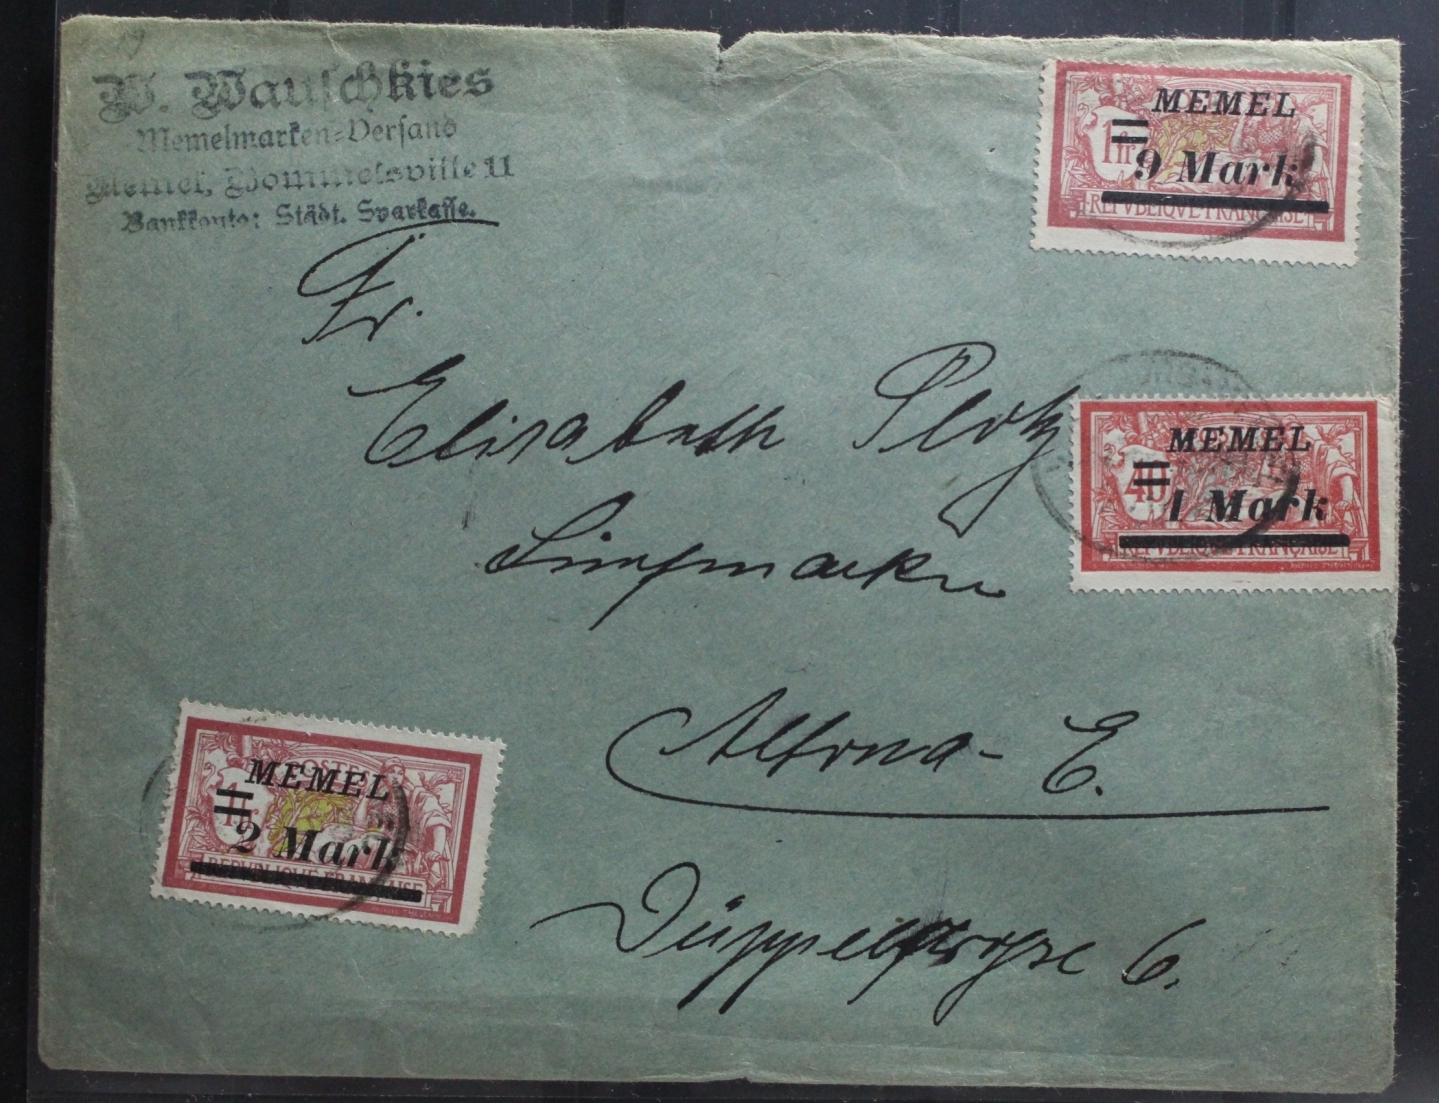 W. Wauschkies
Memelmarken-Versand
Memel, Bommelsville 11
Bankkonto: Städt. Sparkasse.
MEMEL
1 fr
= 9 Mark
REPVBLIQVE FRANÇAISE
Fr.
Elisabeth Plotz
MEMEL
40
= 1 Mark
REPVBLIQVE FRANÇAISE
Altona - E.
POSTES
MEMEL
1 fr
= 2 Mark
REPVBLIQUE FRANÇAISE
Düppelstrasse 6.